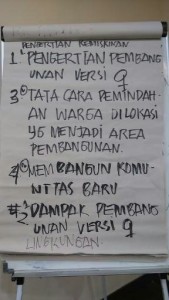 PENGERTIAN KEMISKINAN
1 PENGERTIAN PEMBANG
UNAN VERSI 9
3 TATA CARA PEMINDAH-
AN WARGA DILOKASI
YG MENJADI AREA
PEMBANGUNAN.
4 MEMBANGUN KOMU-
NITAS BARU
2 DAMPAK PEMBANG
UNAN VERSI 9
LINGKUNGAN.